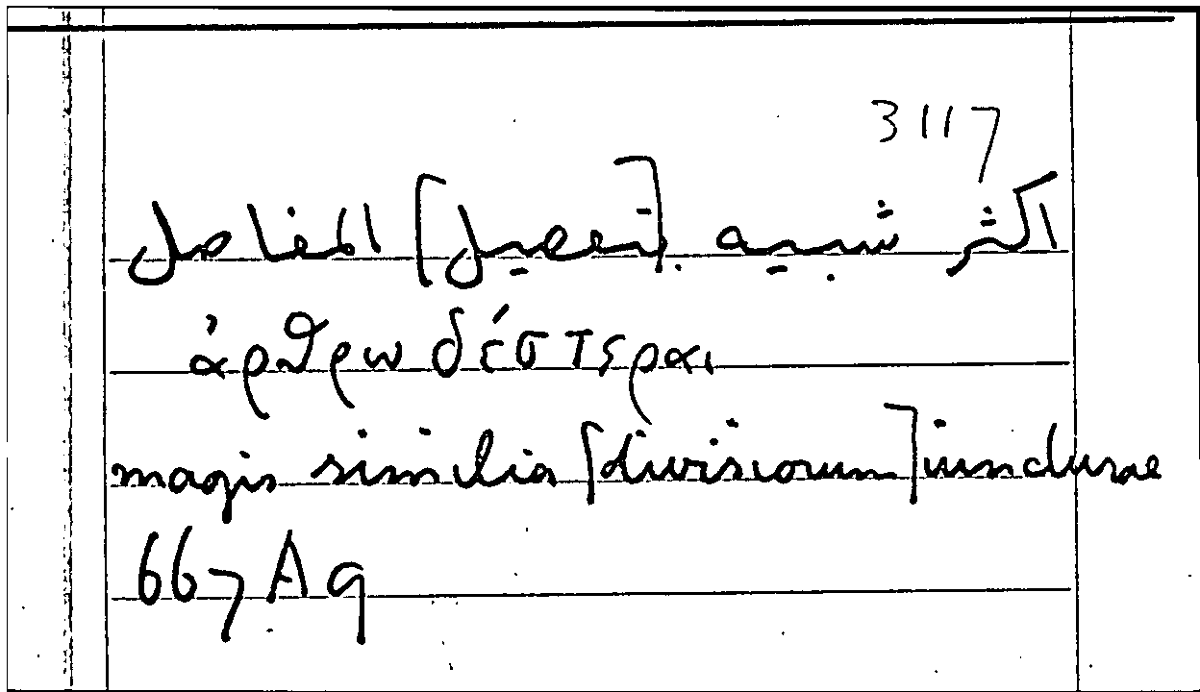 3117
اكثر شبيه [بتفصيل] المفاصل
ἀρθρωδέστεραι
magis similia [divisiorum] iuncturae
667 A9